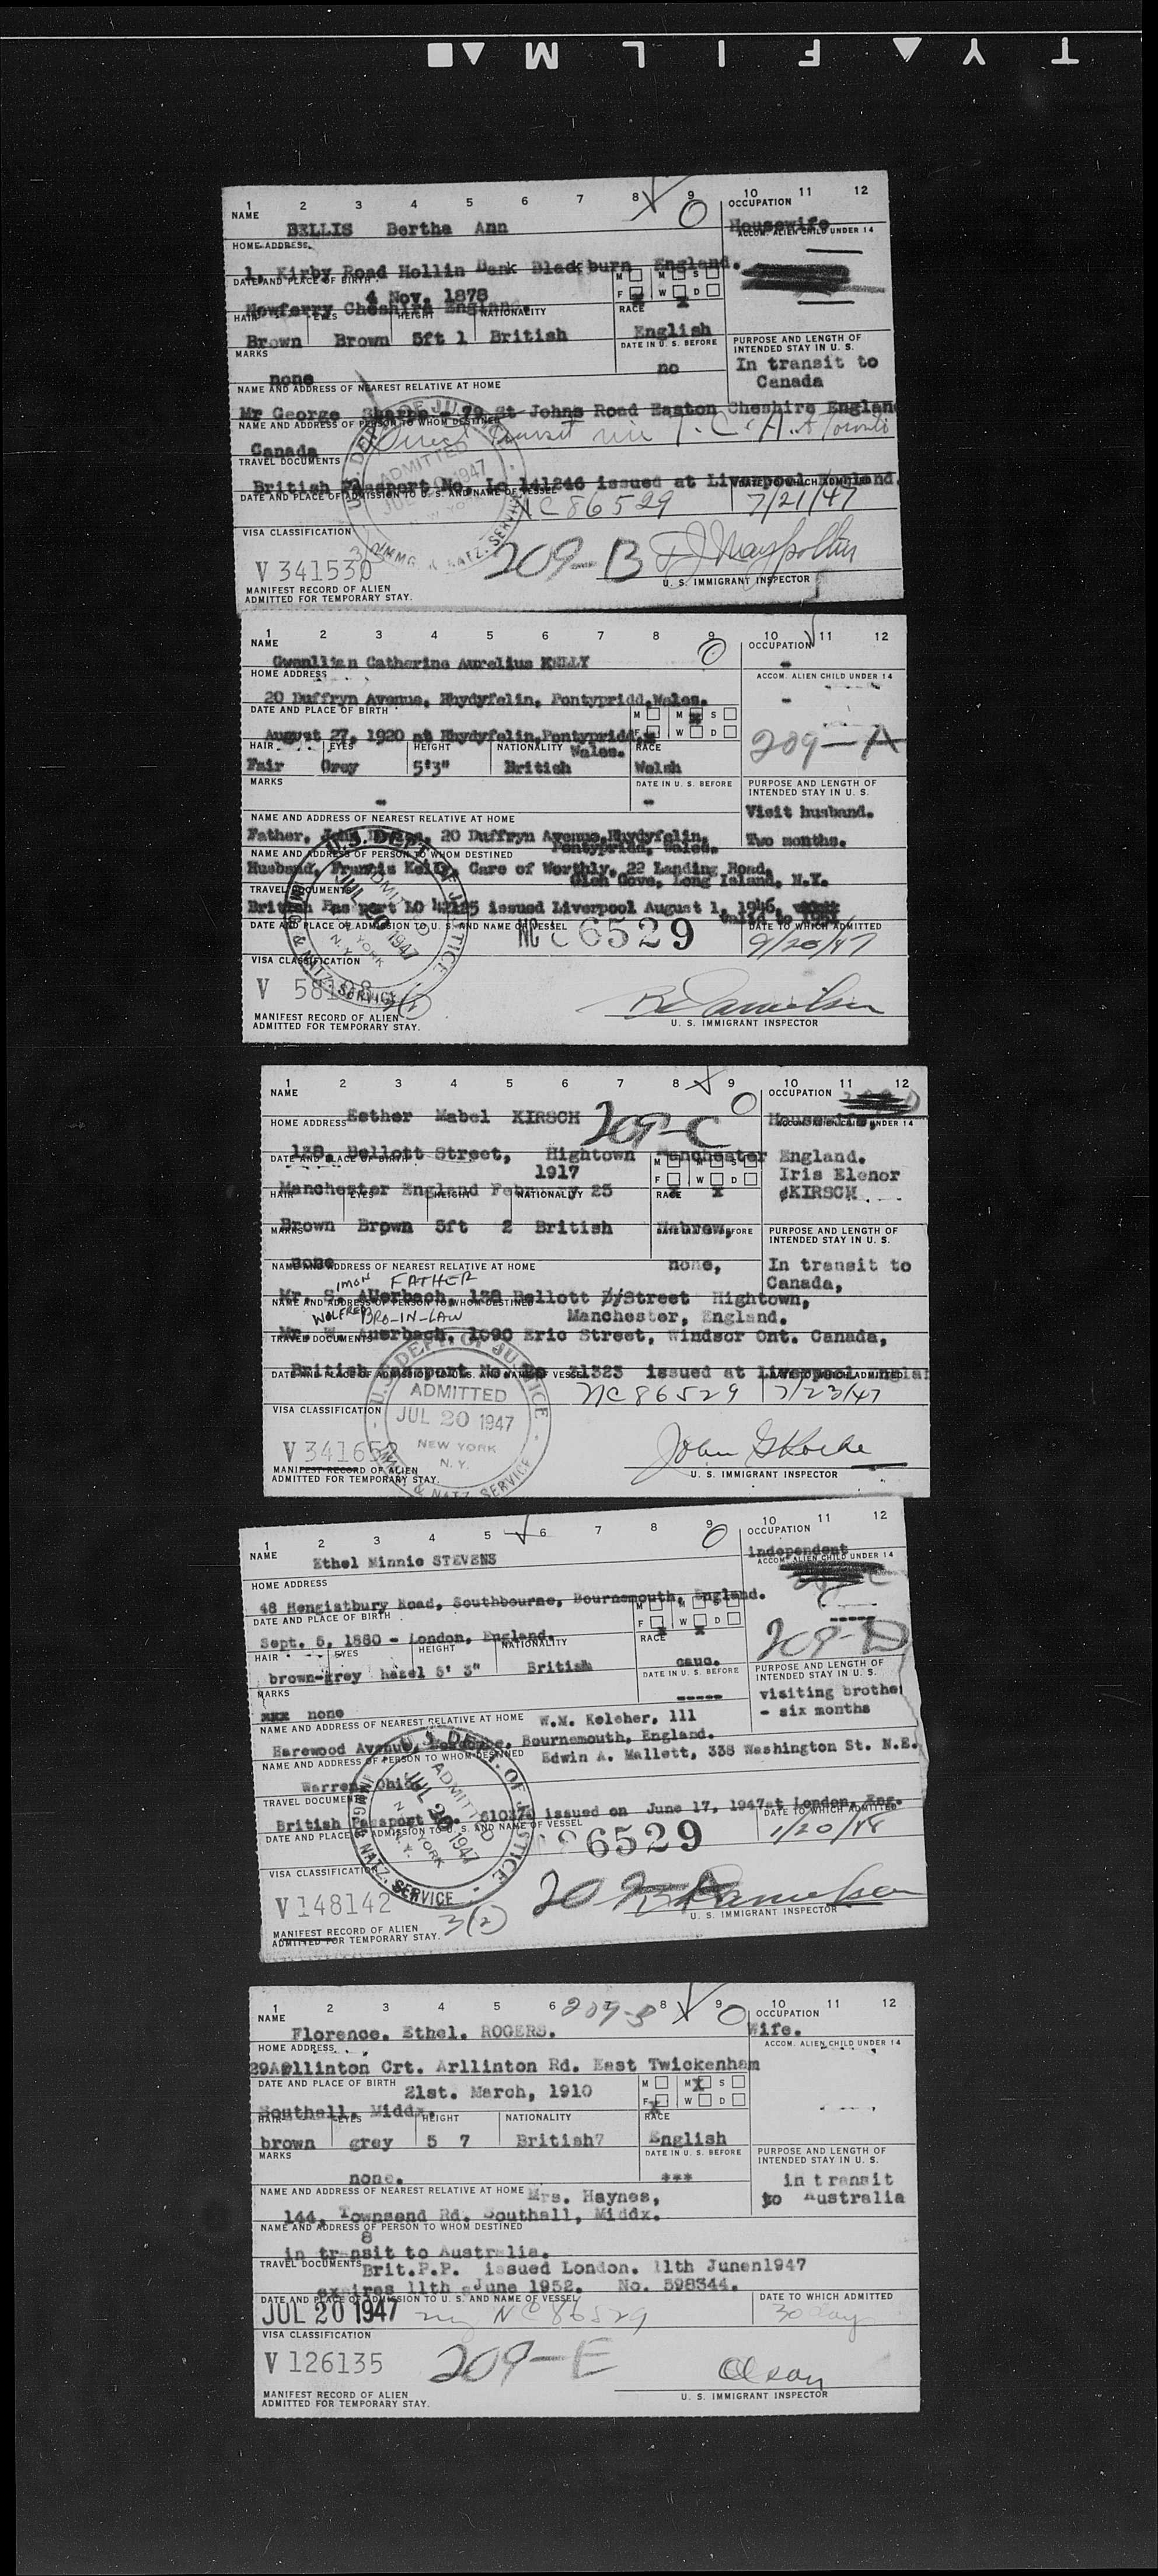 T Y ▲ F I L M ▲ ■
1 2 3 4 5 6 7 8 9 10 11 12
NAME OCCUPATION
BELLIS Bertha Ann Housewife
HOME ADDRESS. ACCOM. ALIEN CHILD UNDER 14
1, Kirby Road Hollin Bank Blackburn England.
DATE AND PLACE OF BIRTH M M S
4 Nov. 1878 F W D
Cheshire England.
HAIR EYES HEIGHT NATIONALITY RACE
Brown Brown 5ft 1 British English
MARKS DATE IN U. S. BEFORE PURPOSE AND LENGTH OF INTENDED STAY IN U. S.
none no In transit to
Canada
NAME AND ADDRESS OF NEAREST RELATIVE AT HOME
Mr George Sharpe - 79 St Johns Road Easton Cheshire England
NAME AND ADDRESS OF PERSON TO WHOM DESTINED
Direct transit via T.C.A. to Toronto
Canada
TRAVEL DOCUMENTS
British Passport No. Lo 141246 issued at Liverpool England.
DATE AND PLACE OF ADMISSION TO U. S. AND NAME OF VESSEL DATE TO WHICH ADMITTED
NC 86529 7/21/47
VISA CLASSIFICATION
V 341530 209-B
U. S. IMMIGRANT INSPECTOR
MANIFEST RECORD OF ALIEN
ADMITTED FOR TEMPORARY STAY.
1 2 3 4 5 6 7 8 9 10 11 12
NAME OCCUPATION
Gwenllian Catherine Aurelius KELLY -
HOME ADDRESS ACCOM. ALIEN CHILD UNDER 14
20 Duffryn Avenue, Rhydyfelin, Pontypridd,Wales. -
DATE AND PLACE OF BIRTH M M S
August 27, 1920 at Rhydyfelin,Pontypridd, F W D 209-A
Wales.
HAIR EYES HEIGHT NATIONALITY RACE
Fair Grey 5'3" British Welsh
MARKS DATE IN U. S. BEFORE PURPOSE AND LENGTH OF INTENDED STAY IN U. S.
- - Visit husband.
NAME AND ADDRESS OF NEAREST RELATIVE AT HOME
Father, John 20 Duffryn Avenue,Rhydyfelin, Two months.
Pontypridd, Wales.
NAME AND ADDRESS OF PERSON TO WHOM DESTINED
Husband, Francis Kelly, Care of Worthly, 22 Landing Road,
Glen Cove, Long Island, N.Y.
TRAVEL DOCUMENTS
British Passport LO issued Liverpool August 1, 1946,
valid to 1951
DATE AND PLACE OF ADMISSION TO U. S. AND NAME OF VESSEL DATE TO WHICH ADMITTED
NC 86529 9/20/47
VISA CLASSIFICATION
U. S. DEPT. OF JUSTICE
ADMITTED
JUL 20 1947
NEW YORK
N. Y.
IMMIG. & NATZ. SERVICE
V
U. S. IMMIGRANT INSPECTOR
MANIFEST RECORD OF ALIEN
ADMITTED FOR TEMPORARY STAY.
1 2 3 4 5 6 7 8 9 10 11 12
NAME OCCUPATION
Esther Mabel KIRSCH 209-C Housewife,
HOME ADDRESS ACCOM. ALIEN CHILD UNDER 14
138, Bellott Street, Hightown Manchester England.
DATE AND PLACE OF BIRTH M M S
1917 F W D Iris Elenor
Manchester England February 25 KIRSCH
HAIR EYES HEIGHT NATIONALITY RACE
Brown Brown 5ft 2 British Hebrew,
MARKS DATE IN U. S. BEFORE PURPOSE AND LENGTH OF INTENDED STAY IN U. S.
none none, In transit to
Canada,
NAME AND ADDRESS OF NEAREST RELATIVE AT HOME
IMON FATHER
Mr. S. Auerbach, 138 Bellott Street Hightown,
Manchester, England.
NAME AND ADDRESS OF PERSON TO WHOM DESTINED
WOLFRED BRO-IN-LAW
Mr. Auerbach, 1090 Eric Street, Windsor Ont. Canada,
TRAVEL DOCUMENTS
British Passport No. 31323 issued at Liverpool
DATE AND PLACE OF ADMISSION TO U. S. AND NAME OF VESSEL DATE TO WHICH ADMITTED
NC 86529 7/23/47
VISA CLASSIFICATION
U. S. DEPT. OF JUSTICE
ADMITTED
JUL 20 1947
NEW YORK
N. Y.
IMMIG. & NATZ. SERVICE
V 341652
U. S. IMMIGRANT INSPECTOR
MANIFEST RECORD OF ALIEN
ADMITTED FOR TEMPORARY STAY.
1 2 3 4 5 6 7 8 9 10 11 12
NAME OCCUPATION
Ethel Minnie STEVENS independent
HOME ADDRESS ACCOM. ALIEN CHILD UNDER 14
48 Hengistbury Road, Southbourne, Bournemouth, England.
DATE AND PLACE OF BIRTH M M S
F W D
Sept. 5, 1880 - London, England. 209-D
HAIR EYES HEIGHT NATIONALITY RACE
brown-grey hazel 5' 3" British cauc.
MARKS DATE IN U. S. BEFORE PURPOSE AND LENGTH OF INTENDED STAY IN U. S.
xxx none ----- visiting brother
- six months
NAME AND ADDRESS OF NEAREST RELATIVE AT HOME W.M. Keleher, 111
Harewood Avenue, Boscombe, Bournemouth, England.
NAME AND ADDRESS OF PERSON TO WHOM DESTINED Edwin A. Mallett, 338 Washington St. N.E.
Warren, Ohio
TRAVEL DOCUMENTS
British Passport No. issued on June 17, 1947at London, Eng.
DATE AND PLACE OF ADMISSION TO U. S. AND NAME OF VESSEL DATE TO WHICH ADMITTED
86529 1/20/48
VISA CLASSIFICATION
U. S. DEPT. OF JUSTICE
ADMITTED
JUL 20 1947
NEW YORK
N. Y.
IMMIG. & NATZ. SERVICE
V 148142 3(2)
U. S. IMMIGRANT INSPECTOR
MANIFEST RECORD OF ALIEN
ADMITTED FOR TEMPORARY STAY.
1 2 3 4 5 6 7 8 9 10 11 12
NAME OCCUPATION
Florence. Ethel. ROGERS. Wife.
HOME ADDRESS ACCOM. ALIEN CHILD UNDER 14
Crt. Arllinton Rd. East Twickenham
DATE AND PLACE OF BIRTH M M S
21st. March, 1910 F W D
Southall. Middx.
HAIR EYES HEIGHT NATIONALITY RACE
brown grey 5 7 British7 English
MARKS DATE IN U. S. BEFORE PURPOSE AND LENGTH OF INTENDED STAY IN U. S.
none. *** in transit
to Australia
NAME AND ADDRESS OF NEAREST RELATIVE AT HOME Mrs. Haynes,
144, Townsend Rd. Southall, Middx.
NAME AND ADDRESS OF PERSON TO WHOM DESTINED
8
in transit to Australia.
TRAVEL DOCUMENTS Brit.P.P. issued London. 11th Junen1947
expires 11th June 1952. No. 598344.
DATE AND PLACE OF ADMISSION TO U. S. AND NAME OF VESSEL DATE TO WHICH ADMITTED
JUL 20 1947 ny NC 86529 30 days
VISA CLASSIFICATION
V 126135 209-E Olson
U. S. IMMIGRANT INSPECTOR
MANIFEST RECORD OF ALIEN
ADMITTED FOR TEMPORARY STAY.